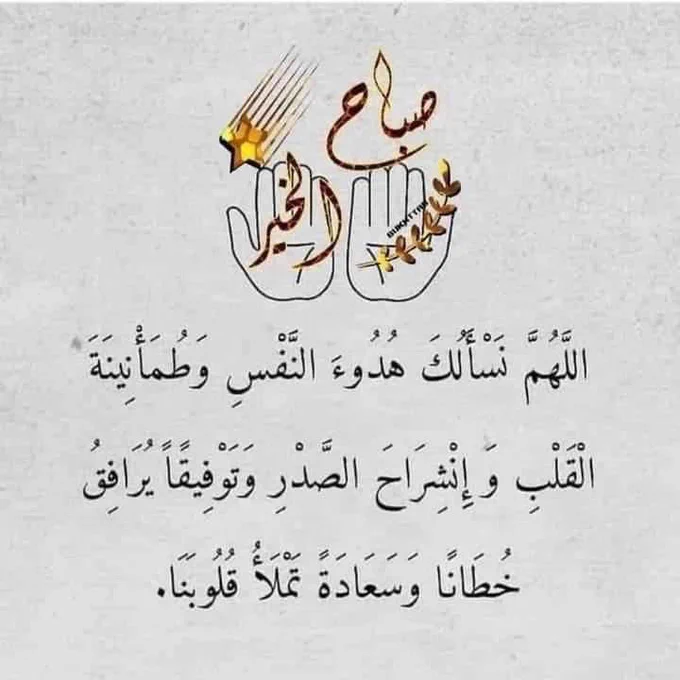 صباح
الخير
اللَّهُمَّ نَسْأَلُكَ هُدُوءَ النَّفْسِ وَطُمَأْنِينَةَ
الْقَلْبِ وَ إِنْشِرَاحَ الصَّدْرِ وَتَوْفِيقًاً يُرَافِقُ
خُطَانًا وَسَعَادَةً تَمْلَأُ قُلُوبَنَا.